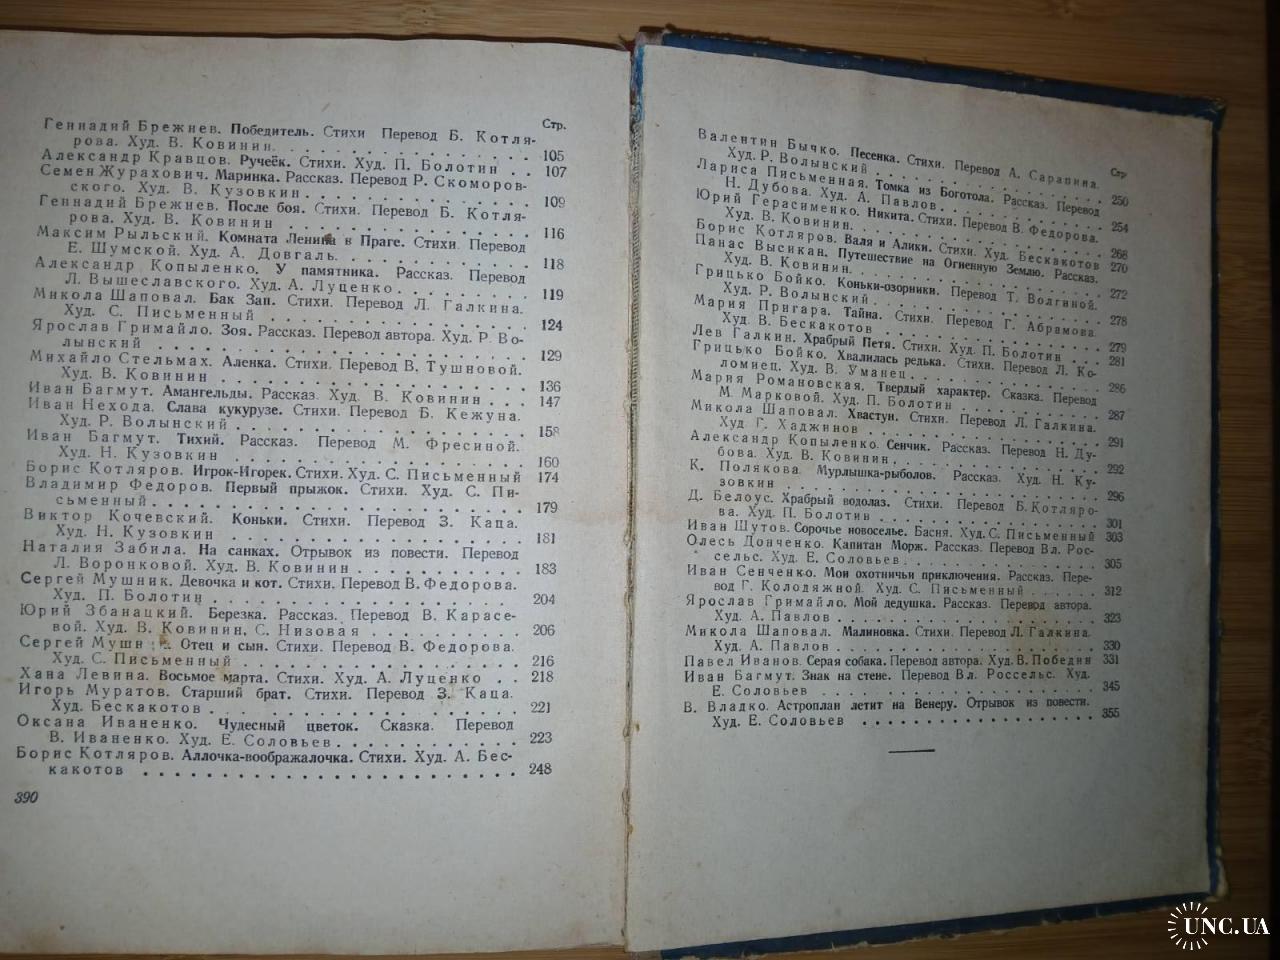 Стр.
Геннадий Брежнев. Победитель. Стихи Перевод Б. Котля-
рова. Худ. В. Ковинин. . . . . . . . . . . . 105
Александр Кравцов. Ручеёк. Стихи. Худ. П. Болотин . . 107
Семен Журахович. Маринка. Рассказ. Перевод Р. Скоморов-
ского. Худ. В. Кузовкин . . . . . . . . . . 109
Геннадий Брежнев. После боя. Стихи. Перевод Б. Котля-
рова. Худ. В. Ковинин . . . . . . . . . . . 116
Максим Рыльский. Комната Ленина в Праге. Стихи. Перевод
Е. Шумской. Худ. А. Довгаль. . . . . . . . . 118
Александр Копыленко. У памятника. Рассказ. Перевод
Л. Вышеславского. Худ. А. Луценко . . . . . . 119
Микола Шаповал. Бак Зап. Стихи. Перевод Л. Галкина.
Худ. С. Письменный . . . . . . . . . . . . 124
Ярослав Гримайло. Зоя. Рассказ. Перевод автора. Худ. Р. Во-
лынский . . . . . . . . . . . . . . . . 129
Михайло Стельмах. Аленка. Стихи. Перевод В. Тушновой.
Худ. В. Ковинин . . . . . . . . . . . . . 136
Иван Багмут. Амангельды. Рассказ. Худ. В. Ковинин . . . 147
Иван Нехода. Слава кукурузе. Стихи. Перевод Б. Кежуна.
Худ. Р. Волынский . . . . . . . . . . . . . 158
Иван Багмут. Тихий. Рассказ. Перевод М. Фресиной.
Худ. Н. Кузовкин . . . . . . . . . . . . . 160
Борис Котляров. Игрок-Игорек. Стихи. Худ. С. Письменный 174
Владимир Федоров. Первый прыжок. Стихи. Худ. С. Пи-
сьменный . . . . . . . . . . . . . . . . 179
Виктор Кочевский. Коньки. Стихи. Перевод З. Каца.
Худ. Н. Кузовкин . . . . . . . . . . . . . 181
Наталия Забила. На санках. Отрывок из повести. Перевод
Л. Воронковой. Худ. В. Ковинин . . . . . . . 183
Сергей Мушник. Девочка и кот. Стихи. Перевод В. Федорова.
Худ. П. Болотин . . . . . . . . . . . . . 204
Юрий Збанацкий. Березка. Рассказ. Перевод В. Карасе-
вой. Худ. В. Ковинин, С. Низовая . . . . . . . 206
Сергей Мушн Отец и сын. Стихи. Перевод В. Федорова.
Худ. С. Письменный . . . . . . . . . . . . 216
Хана Левина. Восьмое марта. Стихи. Худ. А. Луценко . . 218
Игорь Муратов. Старший брат. Стихи. Перевод З. Каца.
Худ. Бескакотов . . . . . . . . . . . . . 221
Оксана Иваненко. Чудесный цветок. Сказка. Перевод
В. Иваненко. Худ. Е. Соловьев . . . . . . . . 223
Борис Котляров. Аллочка-воображалочка. Стихи. Худ. А. Бес-
какотов . . . . . . . . . . . . . . . . 248
390
Стр
Валентин Бычко. Песенка. Стихи. Перевод А. Сарапина.
Худ. Р. Волынский . . . . . . . . . . . . 250
Лариса Письменная. Томка из Боготола. Рассказ. Перевод
Н. Дубова. Худ. А. Павлов . . . . . . . . . 254
Юрий Герасименко. Никита. Стихи. Перевод В. Федорова.
Худ. В. Ковинин. . . . . . . . . . . . . 268
Борис Котляров. Валя и Алики. Стихи. Худ. Бескакотов 270
Панас Высикан. Путешествие на Огненную Землю. Рассказ.
Худ. В. Ковинин. . . . . . . . . . . . . 272
Грицько Бойко. Коньки-озорники. Перевод Т. Волгиной.
Худ. Р. Волынский . . . . . . . . . . . . 278
Мария Пригара. Тайна. Стихи. Перевод Г. Абрамова.
Худ. В. Бескакотов . . . . . . . . . . . . 279
Лев Галкин. Храбрый Петя. Стихи. Худ. П. Болотин . . . 281
Грицько Бойко. Хвалилась редька. Стихи. Перевод Л. Ко-
ломиец. Худ. В. Уманец . . . . . . . . . . 286
Мария Романовская. Твердый характер. Сказка. Перевод
М. Марковой. Худ. П. Болотин . . . . . . . . 287
Микола Шаповал. Хвастун. Стихи. Перевод Л. Галкина.
Худ Г. Хаджинов . . . . . . . . . . . . 291
Александр Копыленко. Сенчик. Рассказ. Перевод Н. Ду-
бова. Худ. В. Ковинин . . . . . . . . . . . 292
К. Полякова. Мурлышка-рыболов. Рассказ. Худ. Н. Ку-
зовкин . . . . . . . . . . . . . . . . 296
Д. Белоус. Храбрый водолаз. Стихи. Перевод Б. Котляро-
ва. Худ. П. Болотин . . . . . . . . . . . . 301
Иван Шутов. Сорочье новоселье. Басня. Худ. С. Письменный 303
Олесь Донченко. Капитан Морж. Рассказ. Перевод Вл. Рос-
сельс. Худ. Е. Соловьев . . . . . . . . . . 305
Иван Сенченко. Мои охотничьи приключения. Рассказ. Пере-
вод Г. Колодяжной. Худ. С. Письменный . . . . . . 312
Ярослав Гримайло. Мой дедушка. Рассказ. Перевод автора.
Худ. А. Павлов . . . . . . . . . . . . . 323
Микола Шаповал. Малиновка. Стихи. Перевод Л. Галкина.
Худ. А. Павлов . . . . . . . . . . . . . 330
Павел Иванов. Серая собака. Перевод автора. Худ. В. Победин 331
Иван Багмут. Знак на стене. Перевод Вл. Россельс. Худ.
Е. Соловьев . . . . . . . . . . . . . . 345
В. Владко. Астроплан летит на Венеру. Отрывок из повести.
Худ. Е. Соловьев . . . . . . . . . . . . . 355
UNC.UA